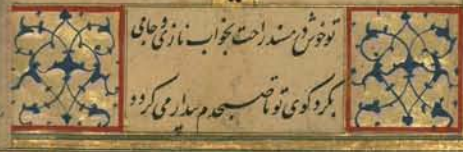 تو خوش در مسند راحت بخواب نازی و جامی
بگرد کوی تو تا صبحدم بیدار می‌گردد